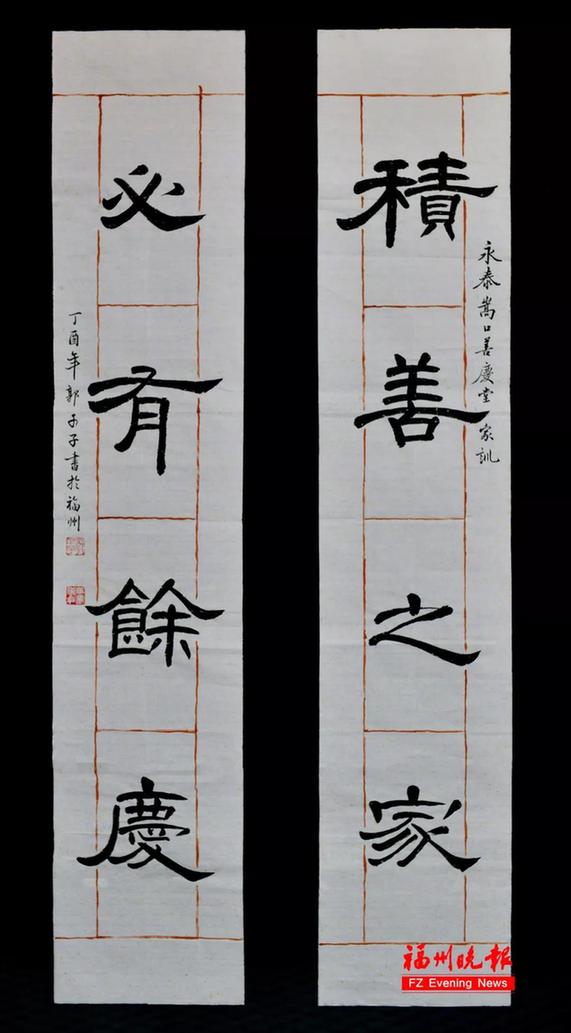 積善之家
永泰嵩口善慶堂家訓
必有餘慶
丁酉年郭子書於福州
福州晚报
FZ Evening News